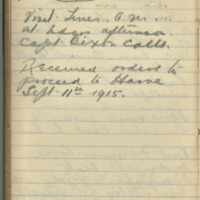 Visit Lines. A.M.
at lague afternoon.
Capt Dixon Calls.
Received orders to
proceed to Havre
Sept 11th 1915.